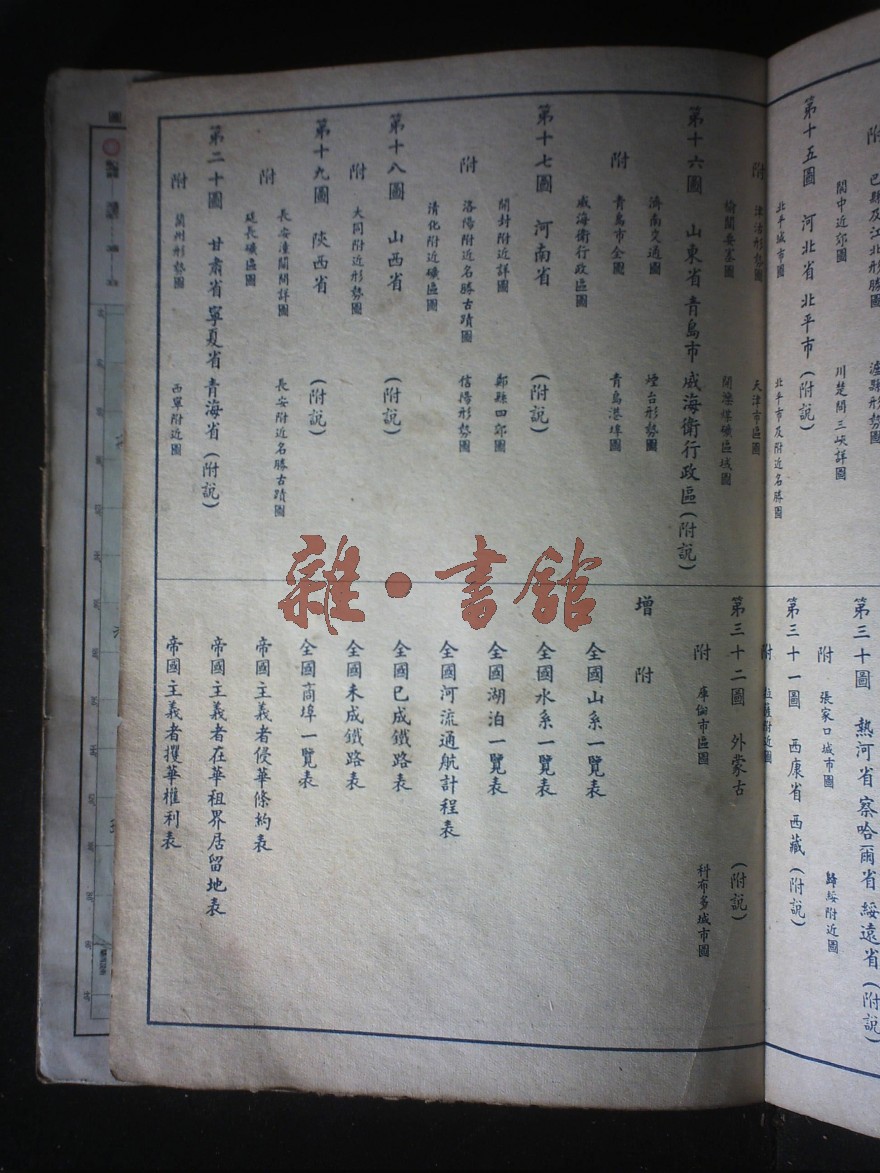 附 巴縣及江北形勝圖 瀘縣形勢圖
閬中近郊圖 川楚間三峽詳圖
第十五圖 河北省 北平市(附說)
北平城市圖 北平市及附近名勝圖
附 津沽形勢圖 天津市區圖
榆關要塞圖 開灤煤礦區域圖
第十六圖 山東省 青島市 威海衛行政區(附說)
濟南交通圖 煙台形勢圖
附 青島市全圖 青島港埠圖
威海衛行政區圖
第十七圖 河南省 (附說)
開封附近詳圖 鄭縣四郊圖
附 洛陽附近名勝古蹟圖 信陽形勢圖
清化附近礦區圖
第十八圖 山西省 (附說)
附 大同附近形勢圖
第十九圖 陝西省 (附說)
附 長安潼關間詳圖 長安附近名勝古蹟圖
延長礦區圖
第二十圖 甘肅省 寧夏省 青海省(附說)
附 蘭州形勢圖 西寧附近圖
第三十圖 熱河省 察哈爾省 綏遠省(附說)
附 張家口城市圖 歸綏附近圖
第三十一圖 西康省 西藏(附說)
附 拉薩附近圖
第三十二圖 外蒙古 (附說)
附 庫倫市區圖 科布多城市圖
增附
全國山系一覽表
全國水系一覽表
全國湖泊一覽表
全國河流通航計程表
全國已成鐵路表
全國未成鐵路表
全國商埠一覽表
帝國主義者侵華條約表
帝國主義者在華租界居留地表
帝國主義者攫華權利表
雜·書館